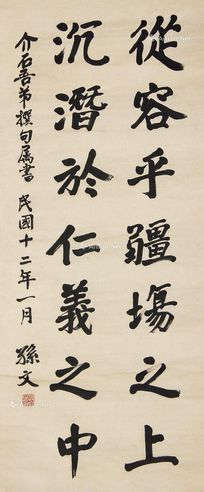 從容乎疆場之上
沉潛於仁義之中
介石吾弟撰句屬書 民國十二年一月 孫文